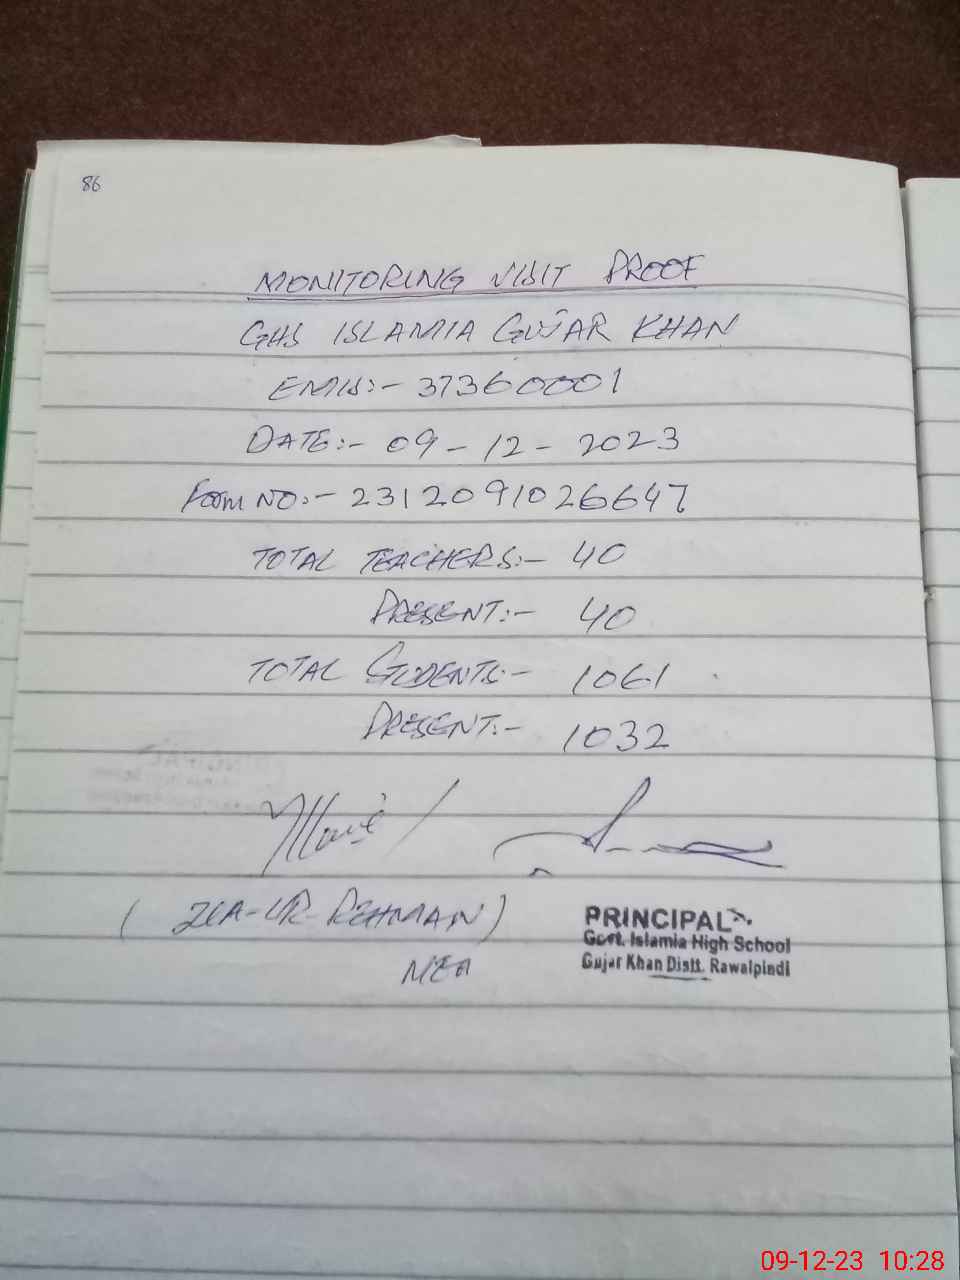 86
MONITORING VISIT PROOF
GHS ISLAMIA GUJAR KHAN
EMIS:- 37360001
DATE:- 09-12-2023
Form NO:- 2312091026647
TOTAL TEACHERS:- 40
PRESENT:- 40
TOTAL STUDENTS:- 1061
PRESENT:- 1032
(ZIA-UR-REHMAN)
MEA
PRINCIPAL
Govt. Islamia High School
Gujar Khan Distt. Rawalpindi
09-12-23 10:28